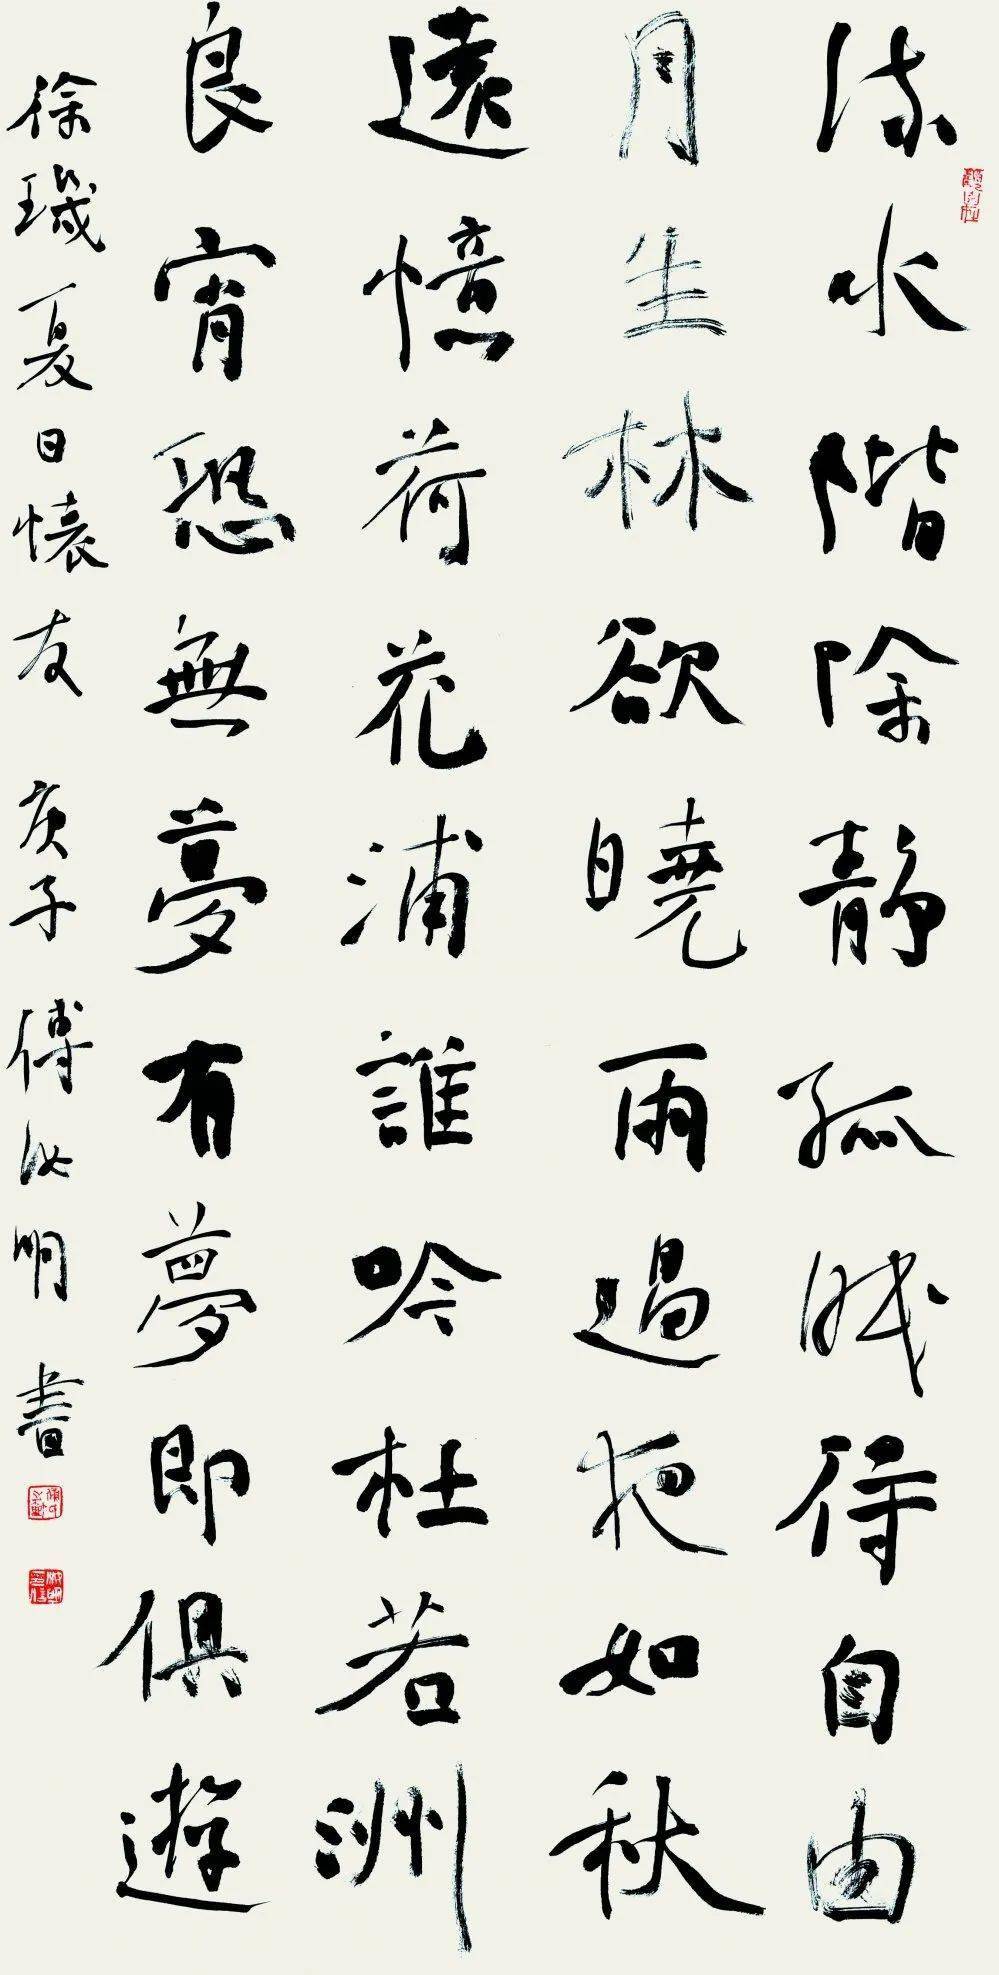 流水階除静孤眠得自由
月生林欲曉雨過夜如秋
遠憶荷花浦誰吟杜若洲
良宵恐無夢有夢即俱遊
徐璣夏日懷友 庚子 傅如明書